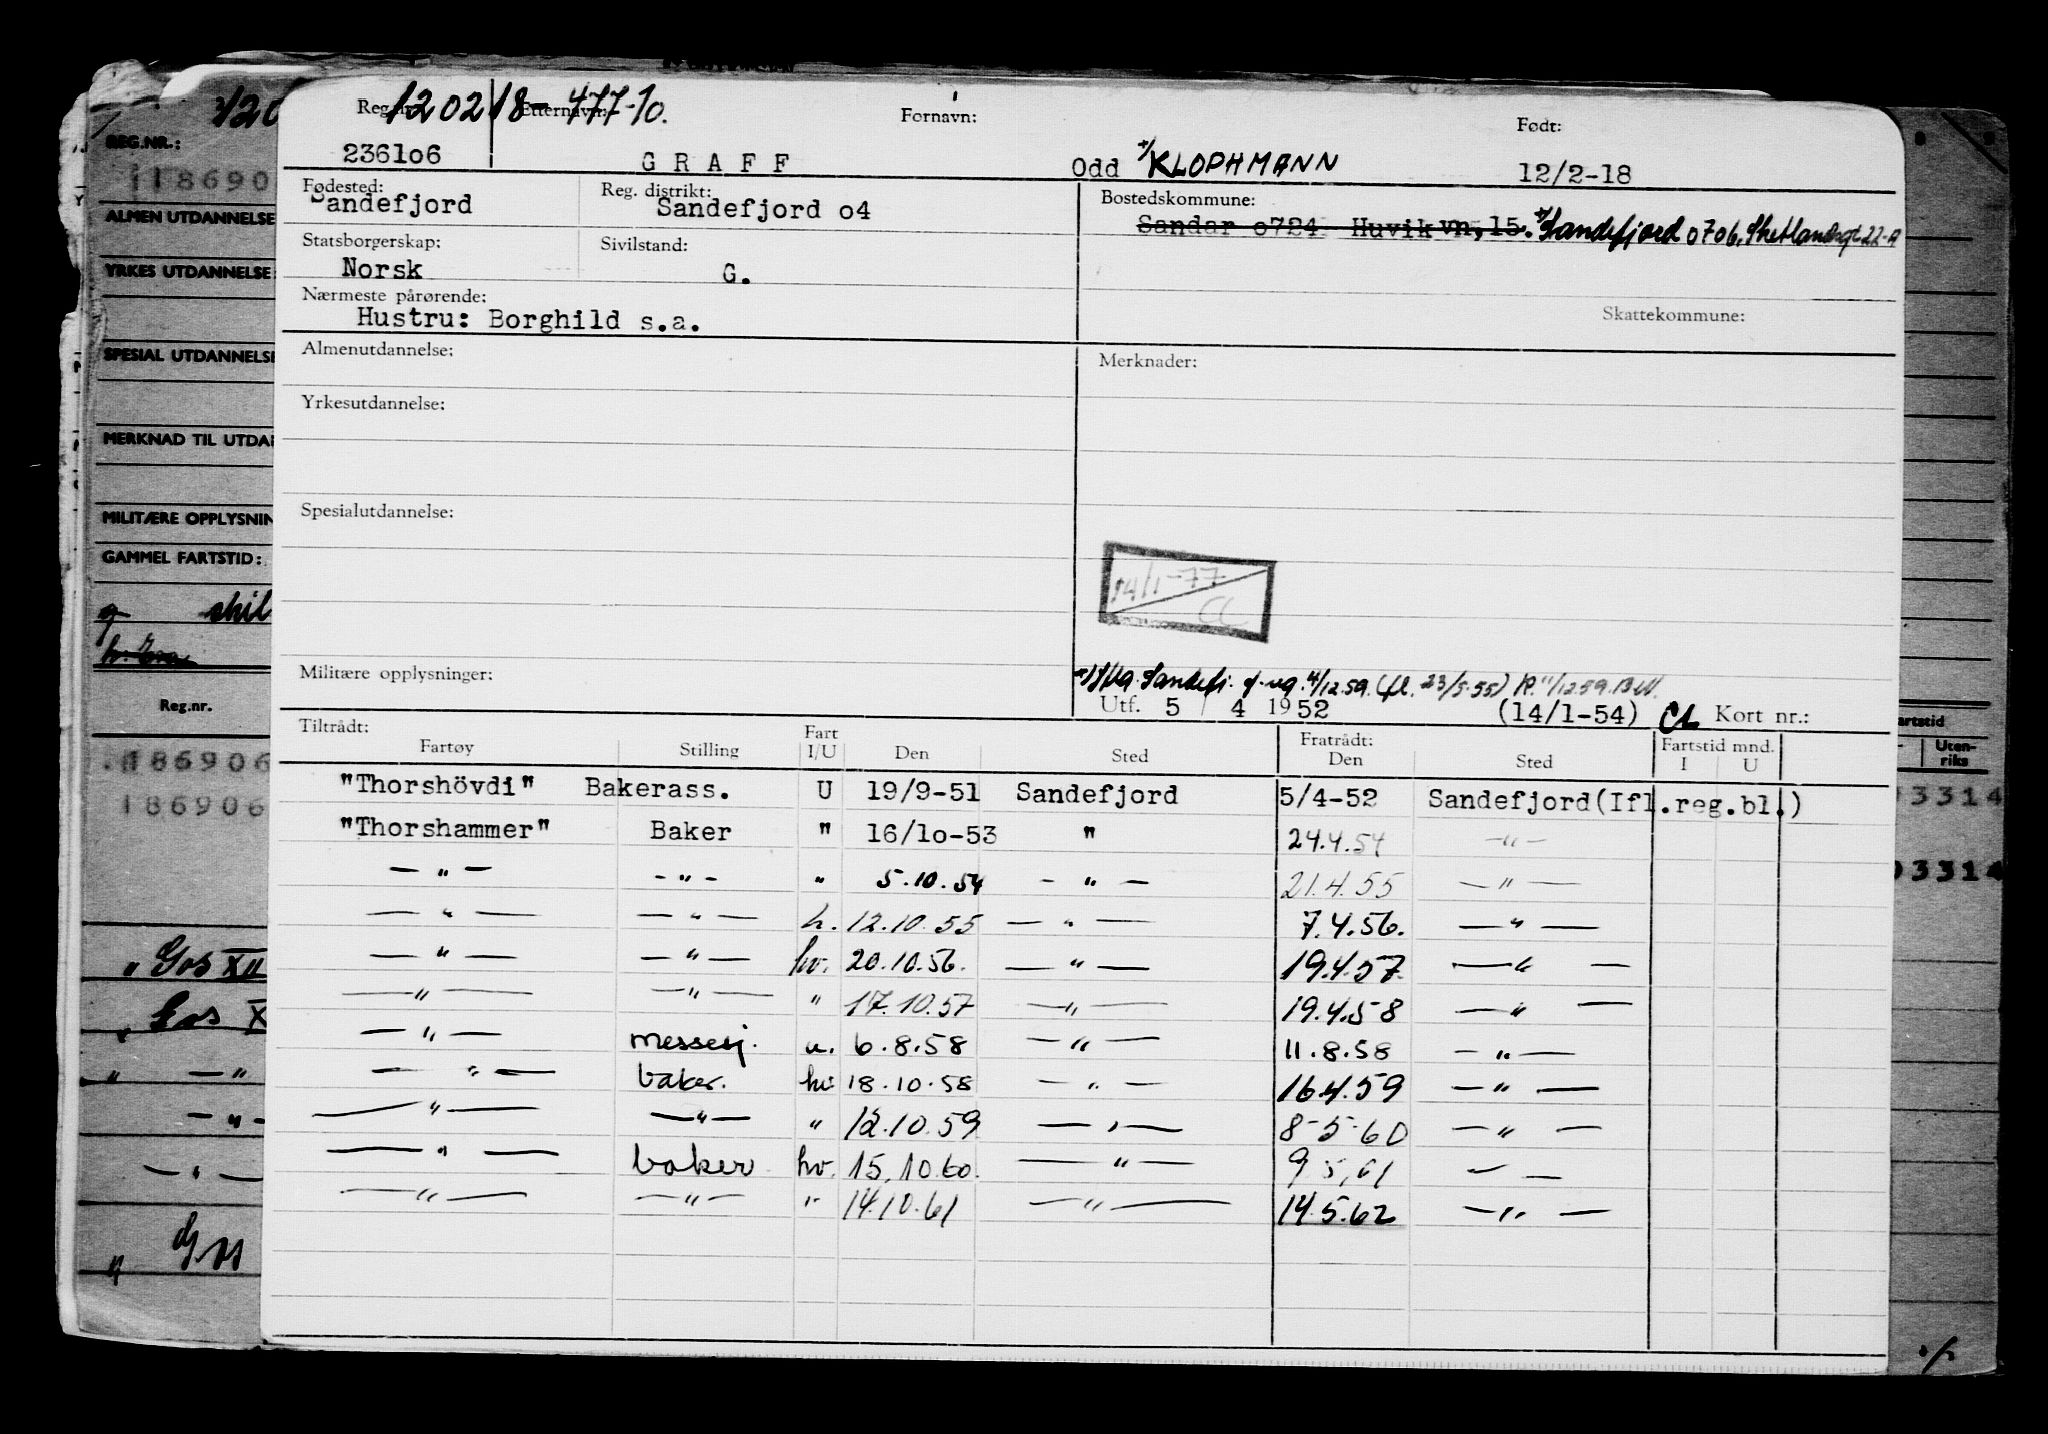 120218-477-10.
Reg.nr. Etternavn: Fornavn: Født:
236106 GRAFF Odd +/KLOPHMANN 12/2-18
Fødested: Reg. distrikt: Bostedskommune:
Sandefjord Sandefjord o4 Sandar o724 Huvik vn, 15. +/Sandefjord 0706, Shetlandsgt 22-A
Statsborgerskap: Sivilstand:
Norsk G.
Nærmeste pårørende: Skattekommune:
Hustru: Borghild s.a.
Almenutdannelse: Merknader:
Yrkesutdannelse:
Spesialutdannelse:
14/1-77
CL
Militære opplysninger:
4/12.59. (fl. 23/5.55) R. 11/12 59.
Utf. 5 / 4 1952 (14/1-54) CL Kort nr.:
Tiltrådt: Fart Fratrådt: Fartstid mnd.
Fartøy Stilling I/U Den Sted Den Sted I U
"Thorshövdi" Bakerass. U 19/9-51 Sandefjord 5/4-52 Sandefjord(Ifl.reg.bl.)
"Thorshammer" Baker " 16/1o-53 " 24.4.54 —"—
—"— —"— " 5.10.54 —"— 21.4.55 —"—
—"— —"— h. 12.10.55 —"— 7.4.56. —"—
—"— —"— hv. 20.10.56. —"— 19.4.57. —"—
—"— —"— " 17.10.57 —"— 19.4.58 —"—
—"— messesj. u. 6.8.58 —"— 11.8.58 —"—
—"— baker. hv. 18.10.58 —"— 16.4.59 —"—
—"— —"— " 12.10.59 —"— 8-5-60 —"—
—"— baker hv. 15.10.60. —"— 9.5.61 — —
—"— —"— " 14.10.61 —"— 14.5.62 —"—
REG.NR.:
118690
ALMEN UTDANNELSE
YRKES UTDANNELSE
SPESIAL UTDANNELSE
MERKNAD TIL UTDAN
MILITÆRE OPPLYSNIN
GAMMEL FARTSTID:
Reg.nr.
186906
186906
" Gos XII
" Gos X
" —"
—"—
—"—
"
artstid
Uten-
riks
3314
3314